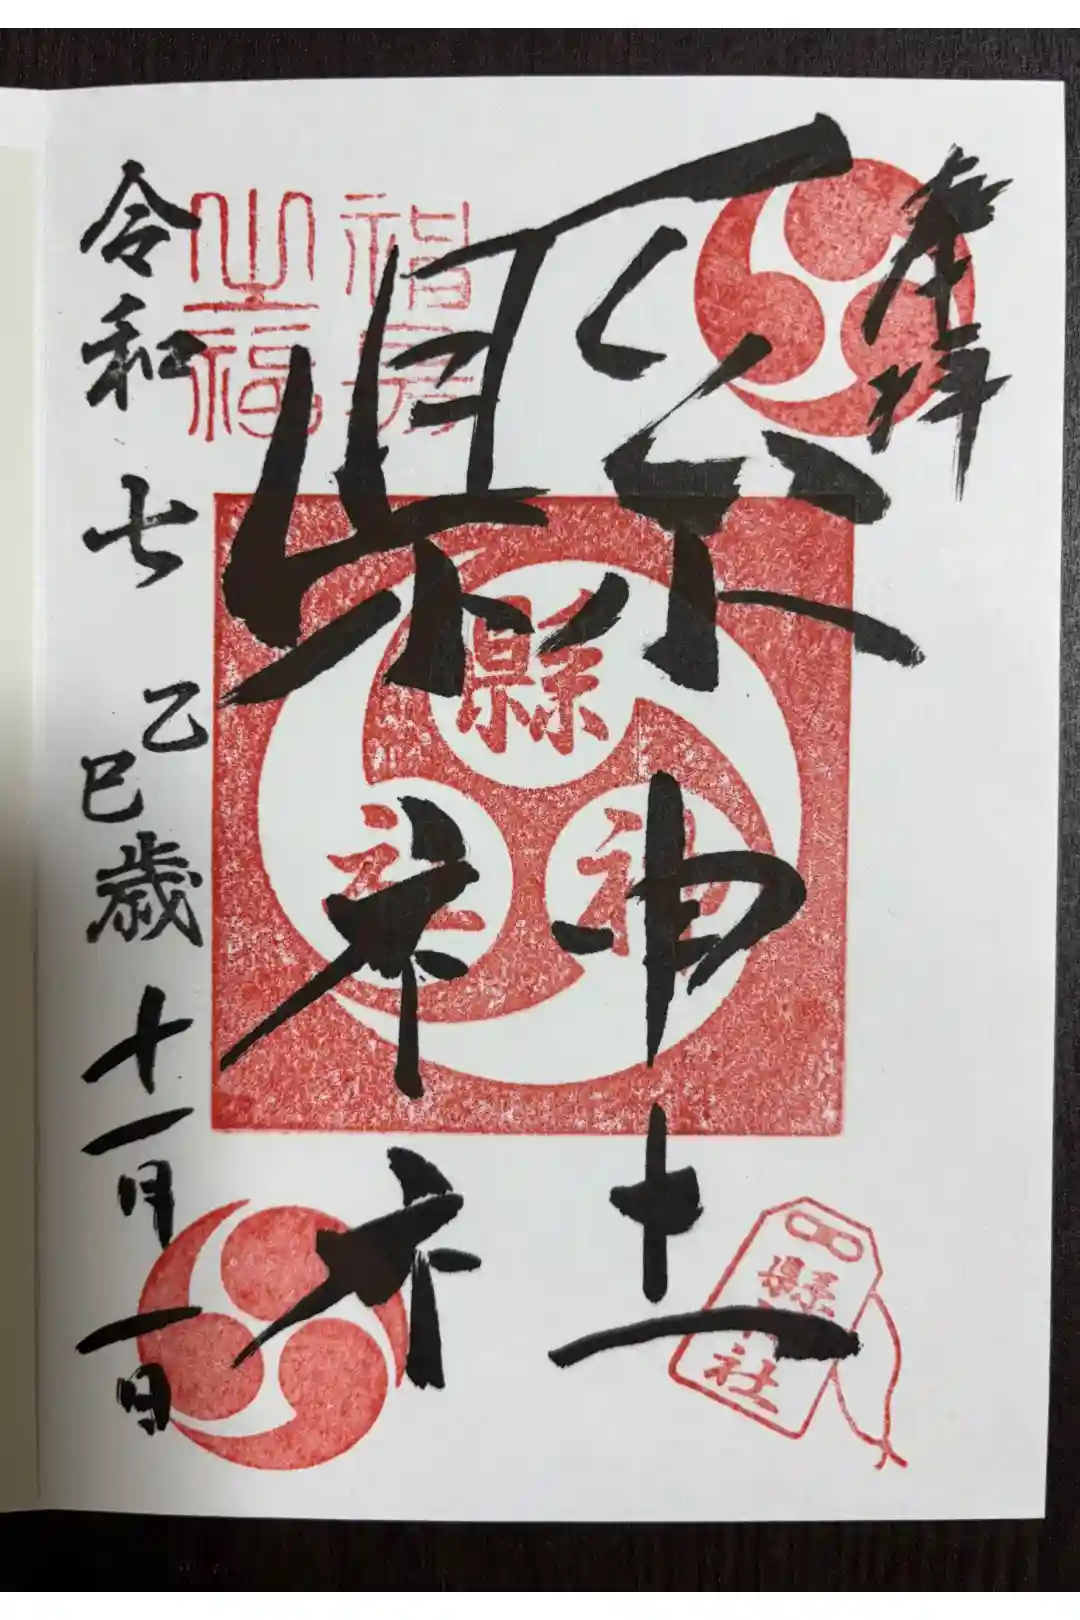 奉拝
縣神社
令和七乙巳歳十一月一日
縣
神
社
縣神社